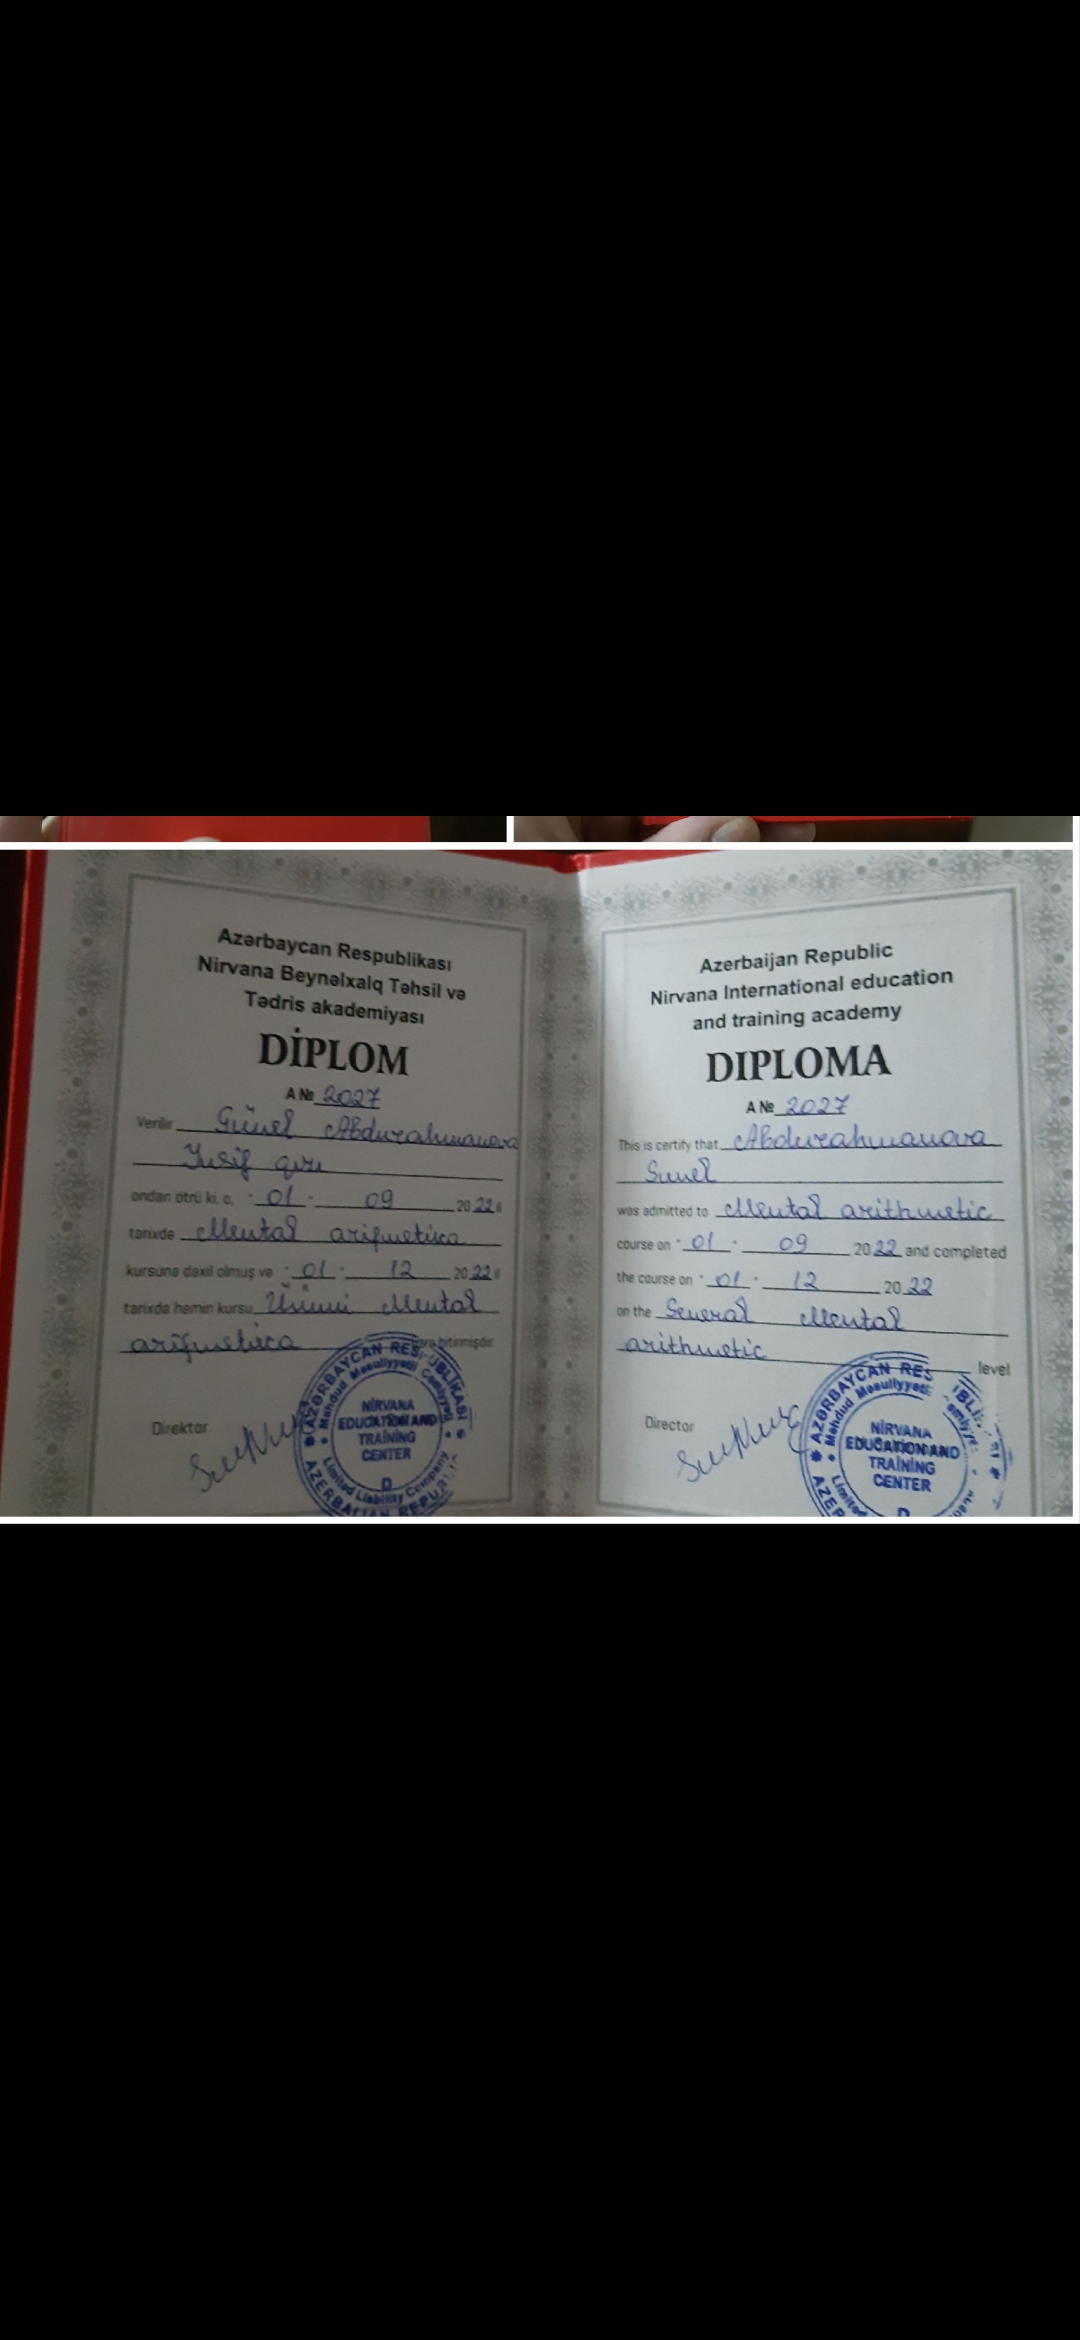 Azərbaycan Respublikası
Nirvana Beynəlxalq Təhsil və
Tədris akademiyası
DİPLOM
A № 2027
Verilir Günel Abdurahmanova
Yusif qızı
ondan ötrü ki, o, "01" 09 2022 il
tarixdə Mental arifmetika
kursuna daxil olmuş və "01" 12 2022 il
tarixdə həmin kursu Ümumi Mental
arifmetika üzrə bitirmişdir.
Direktor
AZƏRBAYCAN RESPUBLİKASI
Məhdud Məsuliyyətli Cəmiyyəti
NİRVANA
EDUCATION AND
TRAİNİNG
CENTER
Limited Liability Company
AZERBAIJAN REPUBLIC
Azerbaijan Republic
Nirvana International education
and training academy
DIPLOMA
A № 2027
This is certify that Abdurahmanova
Gunel
was admitted to Mental arithmetic
course on "01" 09 2022 and completed
the course on "01" 12 2022
on the General Mental
arithmetic level
Director
AZƏRBAYCAN RES
Məhdud Məsuliyyətli
NİRVANA
EDUCATION AND
TRAİNİNG
CENTER
Limited